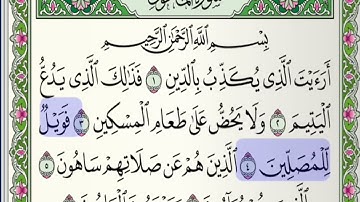 بِسْمِ اللَّهِ الرَّحْمَٰنِ الرَّحِيمِ
أَرَءَيْتَ الَّذِي يُكَذِّبُ بِالدِّينِ ١ فَذَٰلِكَ الَّذِي يَدُعُّ
الْيَتِيمَ ٢ وَلَا يَحُضُّ عَلَىٰ طَعَامِ الْمِسْكِينِ ٣ فَوَيْلٌ
لِّلْمُصَلِّينَ ٤ الَّذِينَ هُمْ عَن صَلَاتِهِمْ سَاهُونَ ٥